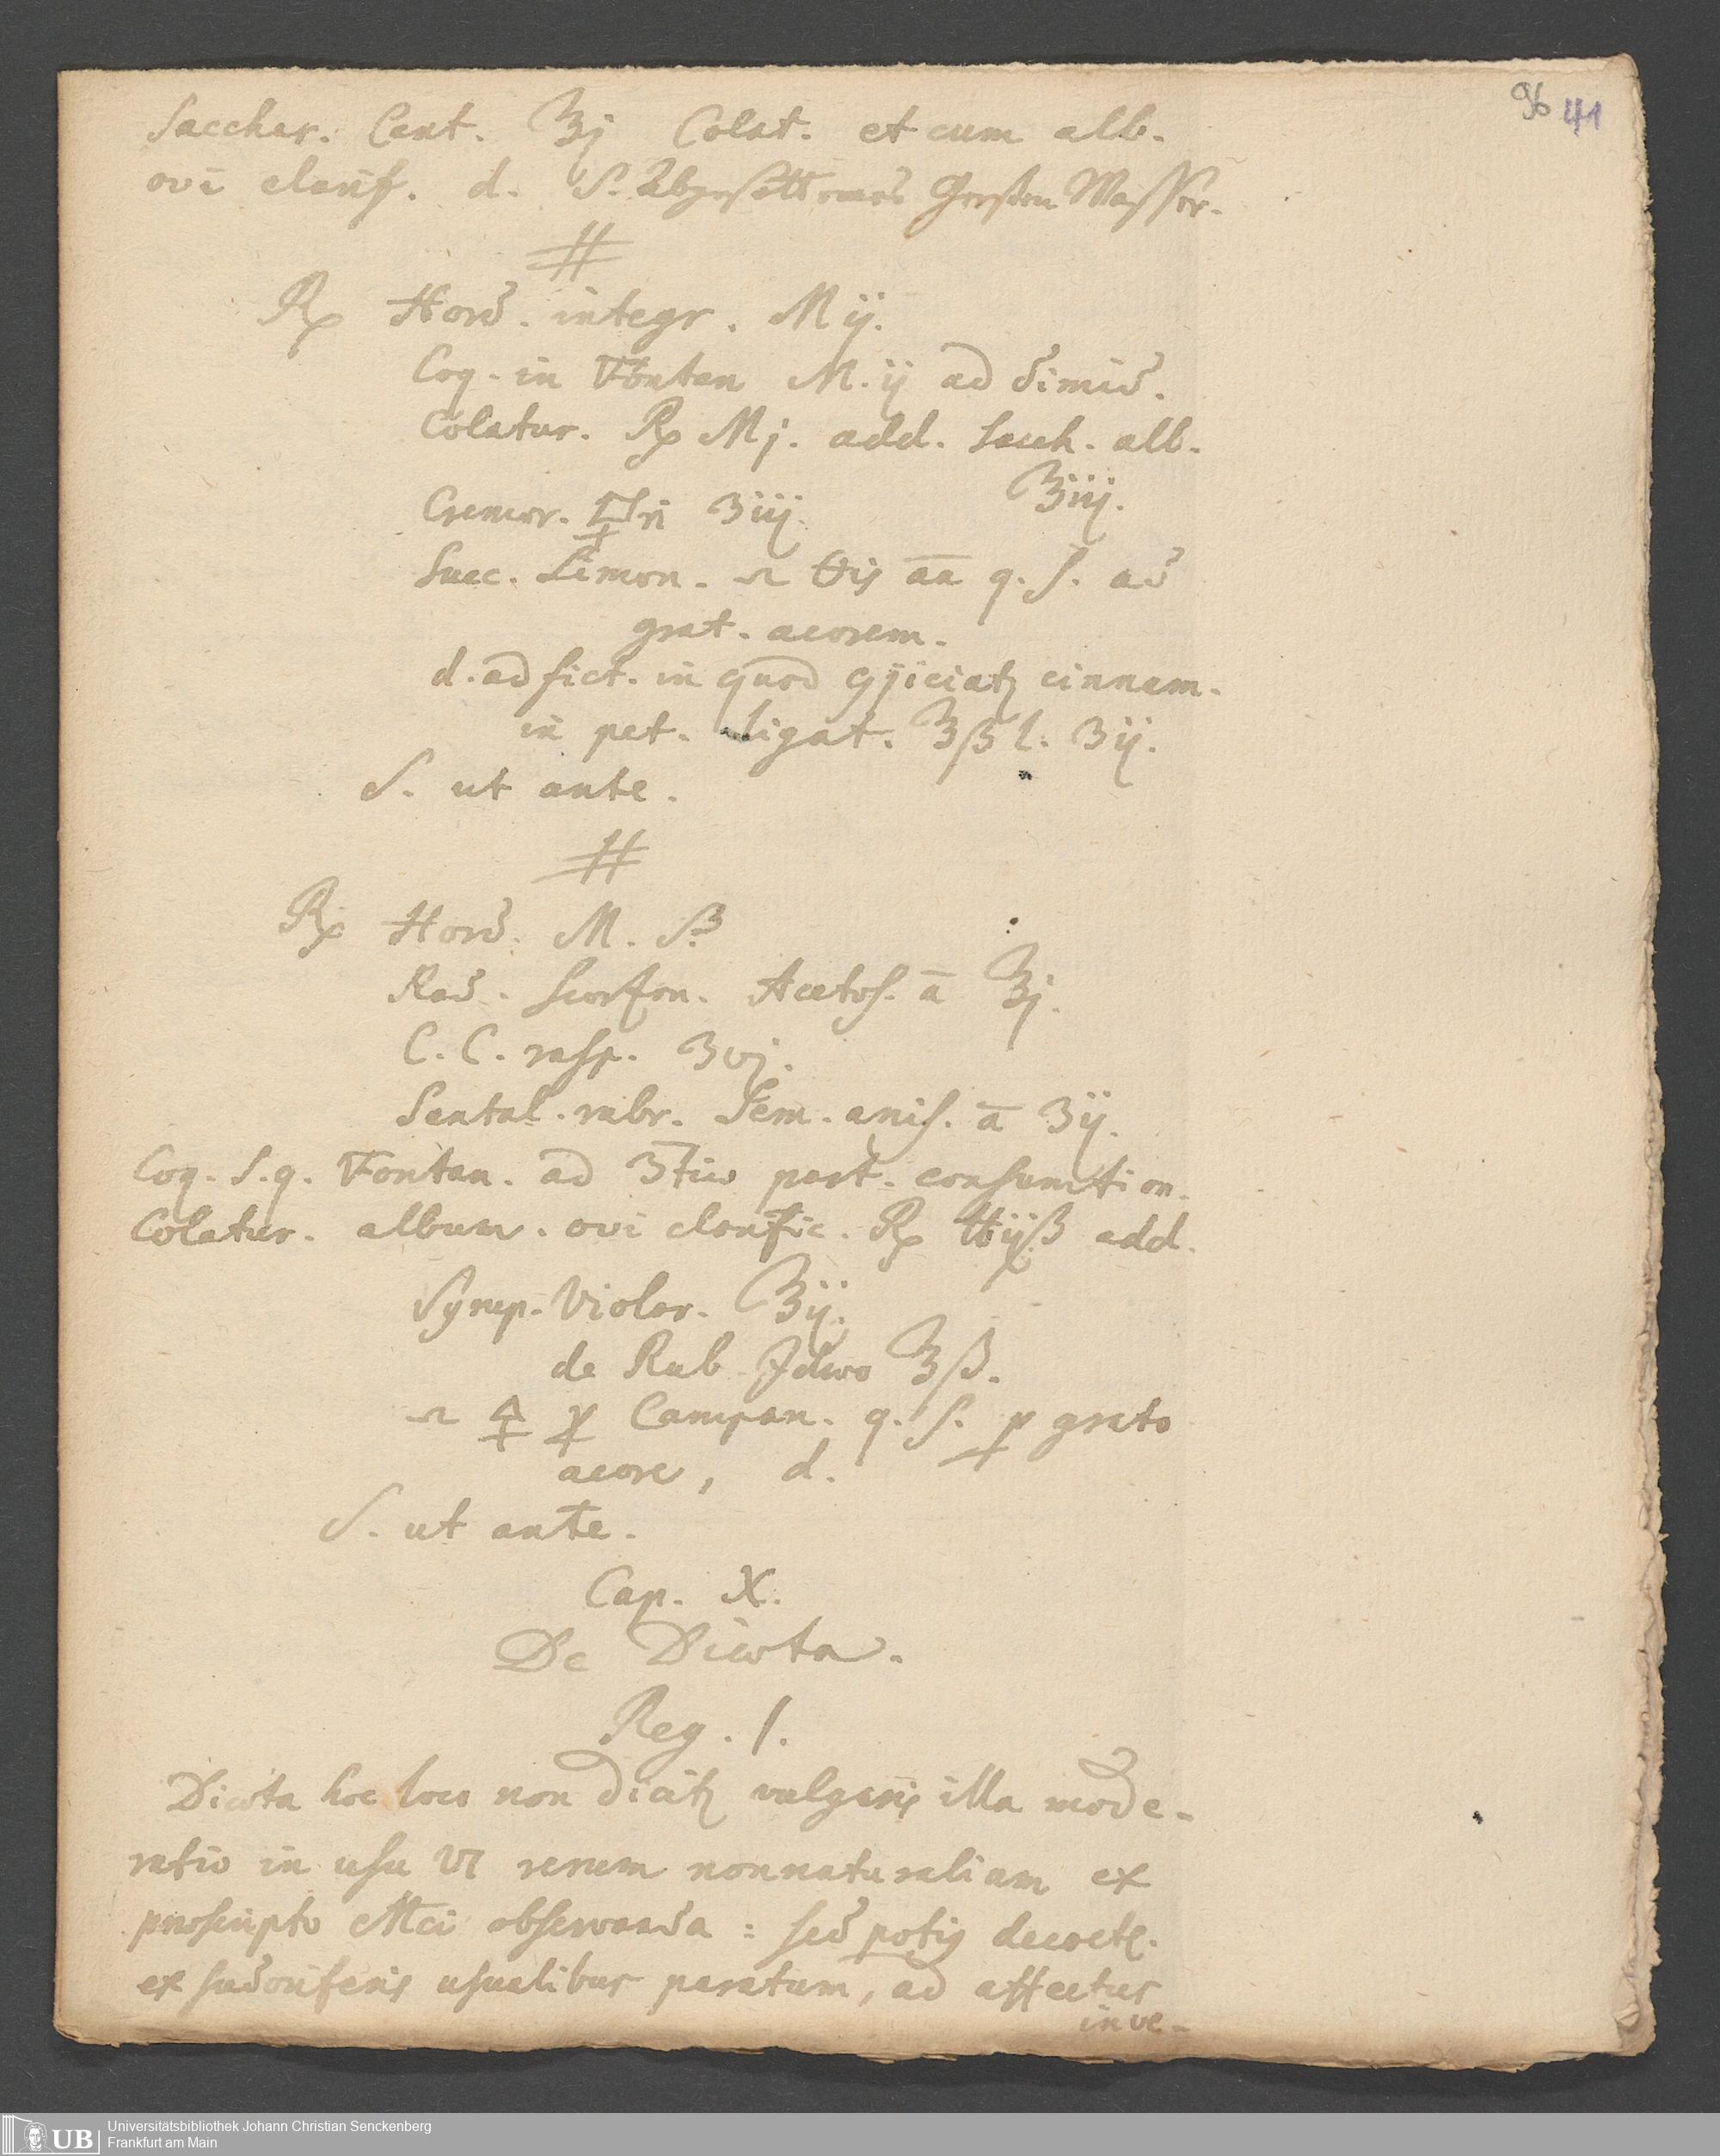 96 41
Sacchar. Cant. ℥j Colat. et cum alb.
ovi clarif. d. S. Abgesottenes Gersten Wasser.
#
℞ Hord. integr. M ij.
Coq. in Fontan M. ij ad dimid.
Colatur. ℞ M j. add. Sacch. alb.
℥iij.
Cremor. 🜿ri ʒiij.
Succ. Limon. ஃ
grat. acorem.
d. ad fict. in quod cinnam.
in pet. ligat. ʒß l. ʒij.
S. ut ante.
#
℞ Hord. M. ß
Rad. Scorzon. Acetos. ā ℥j.
C. C. rasp. ʒvj.
Santal. rubr. Sem. anis. ā ʒij.
Coq. s. q. Fontan. ad 3tiae part. consumtion.
Colatur. album. ovi clarific. ℞ ℔ijß add.
Syrup. Violar. ℥ij.
de Rub. Idaeo ℥ß.
🜍 Campan. q. s. p grato
acore, d.
S. ut ante.
Cap. X.
De Diaeta.
Reg. 1.
Diaeta hoc loco non dicitur vulgaris illa mode-
ratio in usu VI rerum nonnaturalium ex
praescripto Mci observanda: sed potius decoct.
ex sudoriferis usualibus paratum, ad affectus
inve-
UB Universitätsbibliothek Johann Christian Senckenberg
Frankfurt am Main